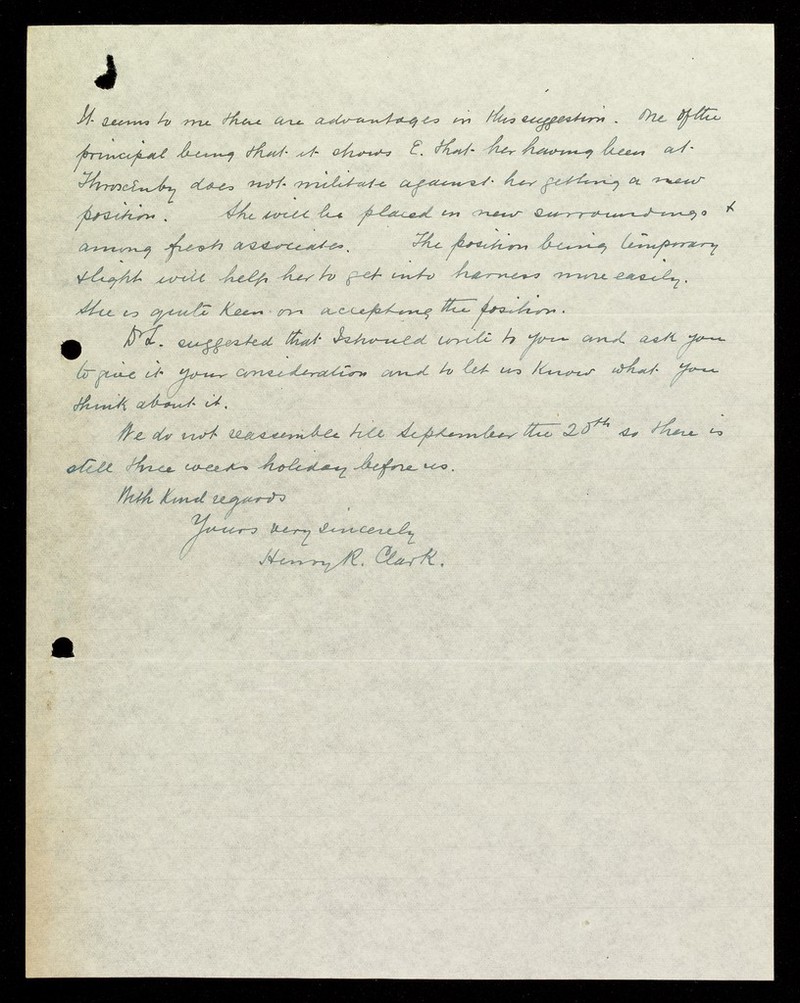 It seems to me there are advantages in this suggestion. One of the
principal being that it shows E. that her having been at
does not militate against her getting a new
position. She will be placed in new surroundings &
among fresh associates. The position being temporary
& light will help her to get into harness more easily.
She is quite keen on accepting the position.
Dr L. suggested that I should write to you and ask you
to give it your consideration and to let us know what you
think about it.
We do not reassemble till September the 20th so there is
still three weeks holiday before us.
With kind regards
Yours very sincerely
Henry R. Clark.